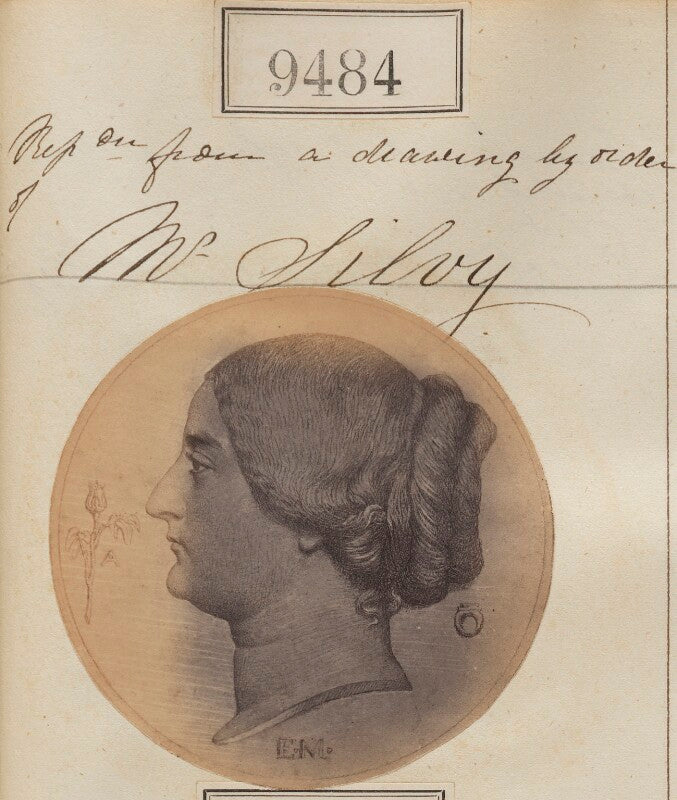 9484
Rep on from a drawing by order
of
Mr Silvy
A